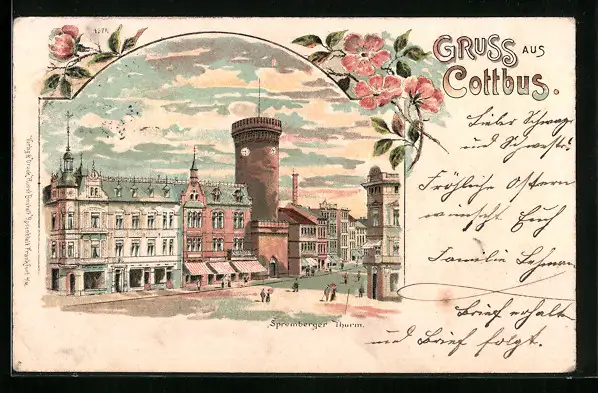 GRUSS AUS
Cottbus.
Lieber Schwager
und Schwester.
Fröhliche Ostern
wünscht Euch
Familie Lehmann
Brief erhalten
und Brief folgt.
Spremberger Thurm.